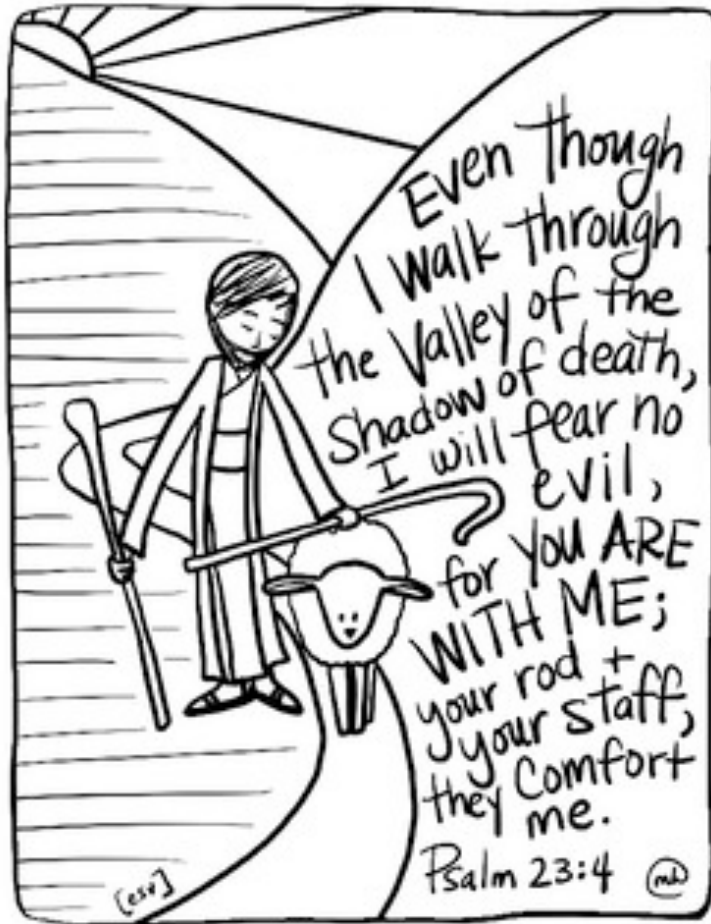 Even Though
I walk through
the Valley of the
Shadow of death,
I will fear no
evil,
for YOU ARE
WITH ME;
your rod +
your staff,
they Comfort
me.
Psalm 23:4
mh
[esv]